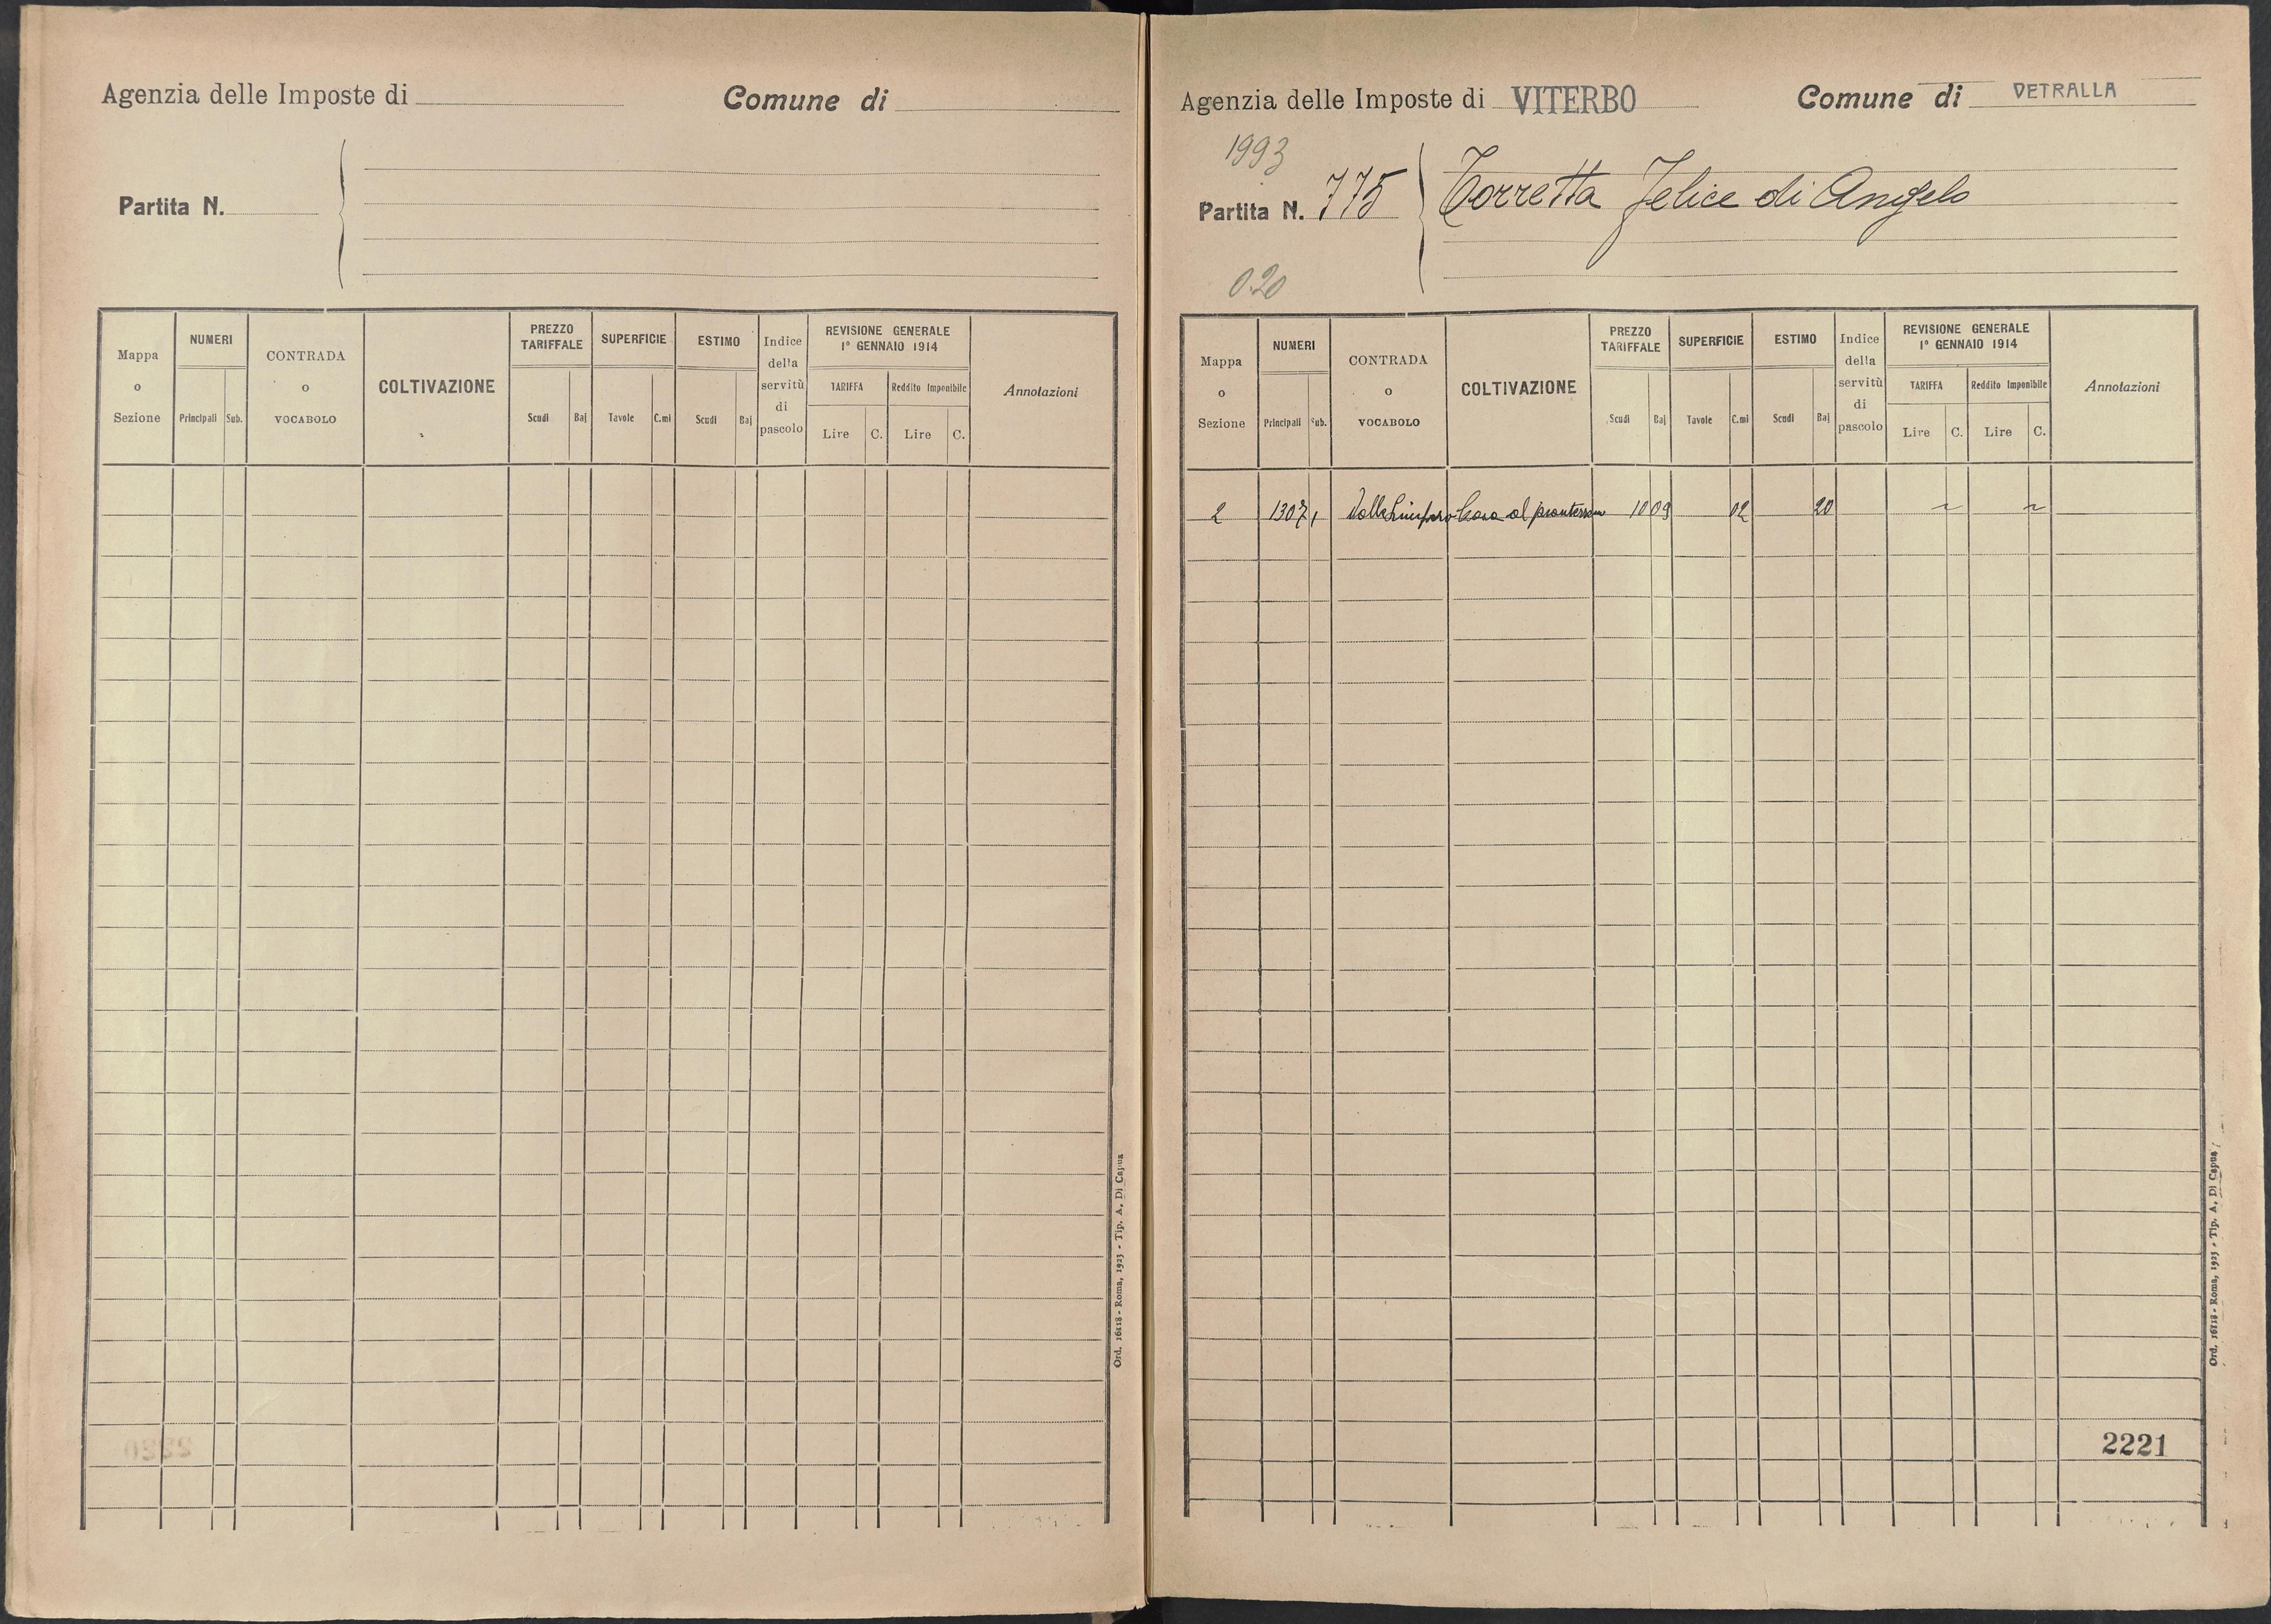 Agenzia delle Imposte di
Comune di
Partita N.
Mappa o Sezione
NUMERI
Principali Sub.
CONTRADA o VOCABOLO
COLTIVAZIONE
PREZZO TARIFFALE
Scudi Baj
SUPERFICIE
Tavole C.mi
ESTIMO
Scudi Baj
Indice della servitù di pascolo
REVISIONE GENERALE
1° GENNAIO 1914
TARIFFA
Lire C.
Reddito Imponibile
Lire C.
Annotazioni
Ord. 16118 - Roma, 1923 - Tip. A. Di Capua
Agenzia delle Imposte di VITERBO
Comune di VETRALLA
1993
Partita N. 775
Torretta Felice di Angelo
0.20
Mappa o Sezione
NUMERI
Principali Sub.
CONTRADA o VOCABOLO
COLTIVAZIONE
PREZZO TARIFFALE
Scudi Baj
SUPERFICIE
Tavole C.mi
ESTIMO
Scudi Baj
Indice della servitù di pascolo
REVISIONE GENERALE
1° GENNAIO 1914
TARIFFA
Lire C.
Reddito Imponibile
Lire C.
Annotazioni
2 1307 1 Casa al pianterreno 10 09 02 20
2221
Ord. 16118 - Roma, 1923 - Tip. A. Di Capua